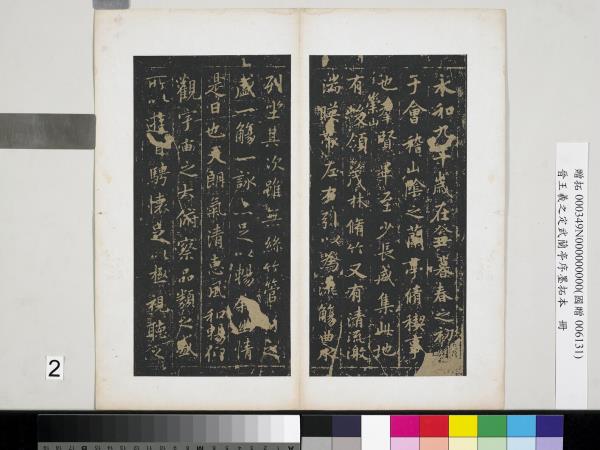 永和九年歲在癸丑暮春之初
于會稽山陰之蘭亭脩禊事
也羣賢畢至少長咸集此地
有崇山峻領茂林脩竹又有清流激
湍暎帶左右引以為流觴曲水
列坐其次雖無絲竹管之
盛一觴一詠亦足以暢叙幽情
是日也天朗氣清惠風和暢仰
觀宇宙之大俯察品類之盛
所以遊目騁懷足以極視聽之
贈拓 000349N000000000(國贈 006131)
晉王羲之定武蘭亭序墨拓本 冊
2